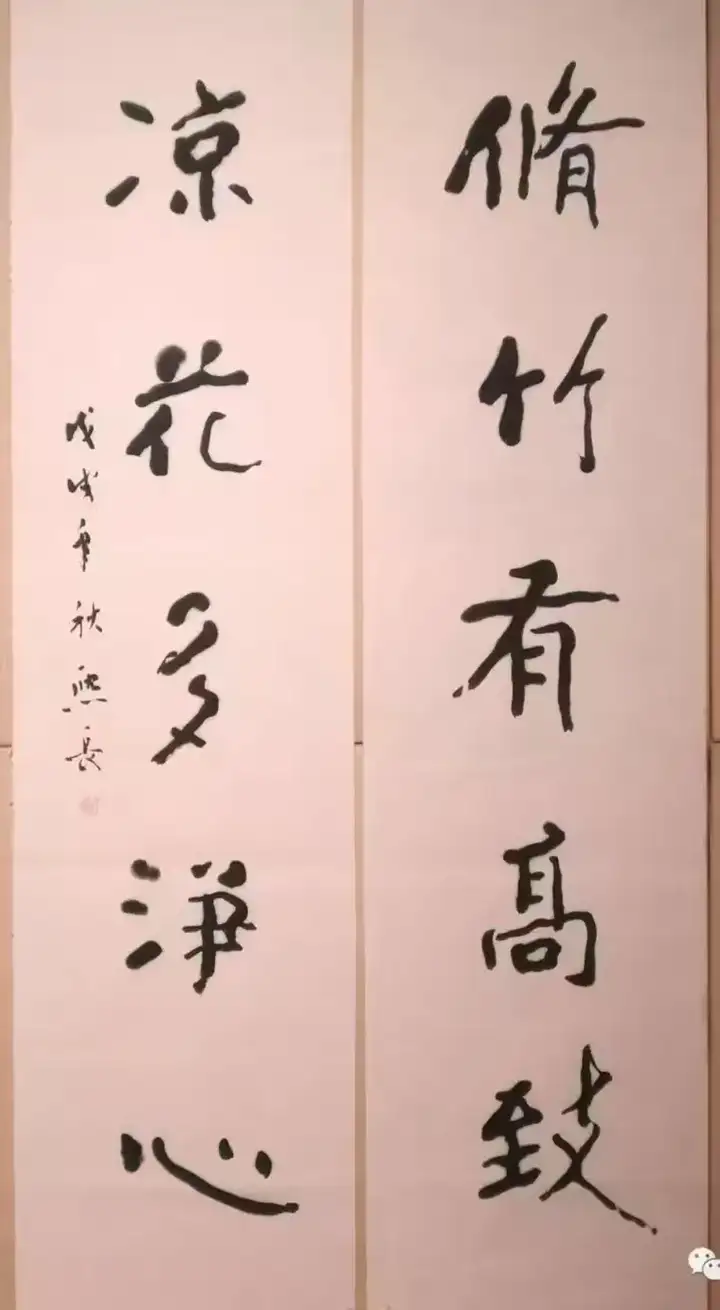 脩竹有高致
凉花多淨心
戊戌年秋熙長